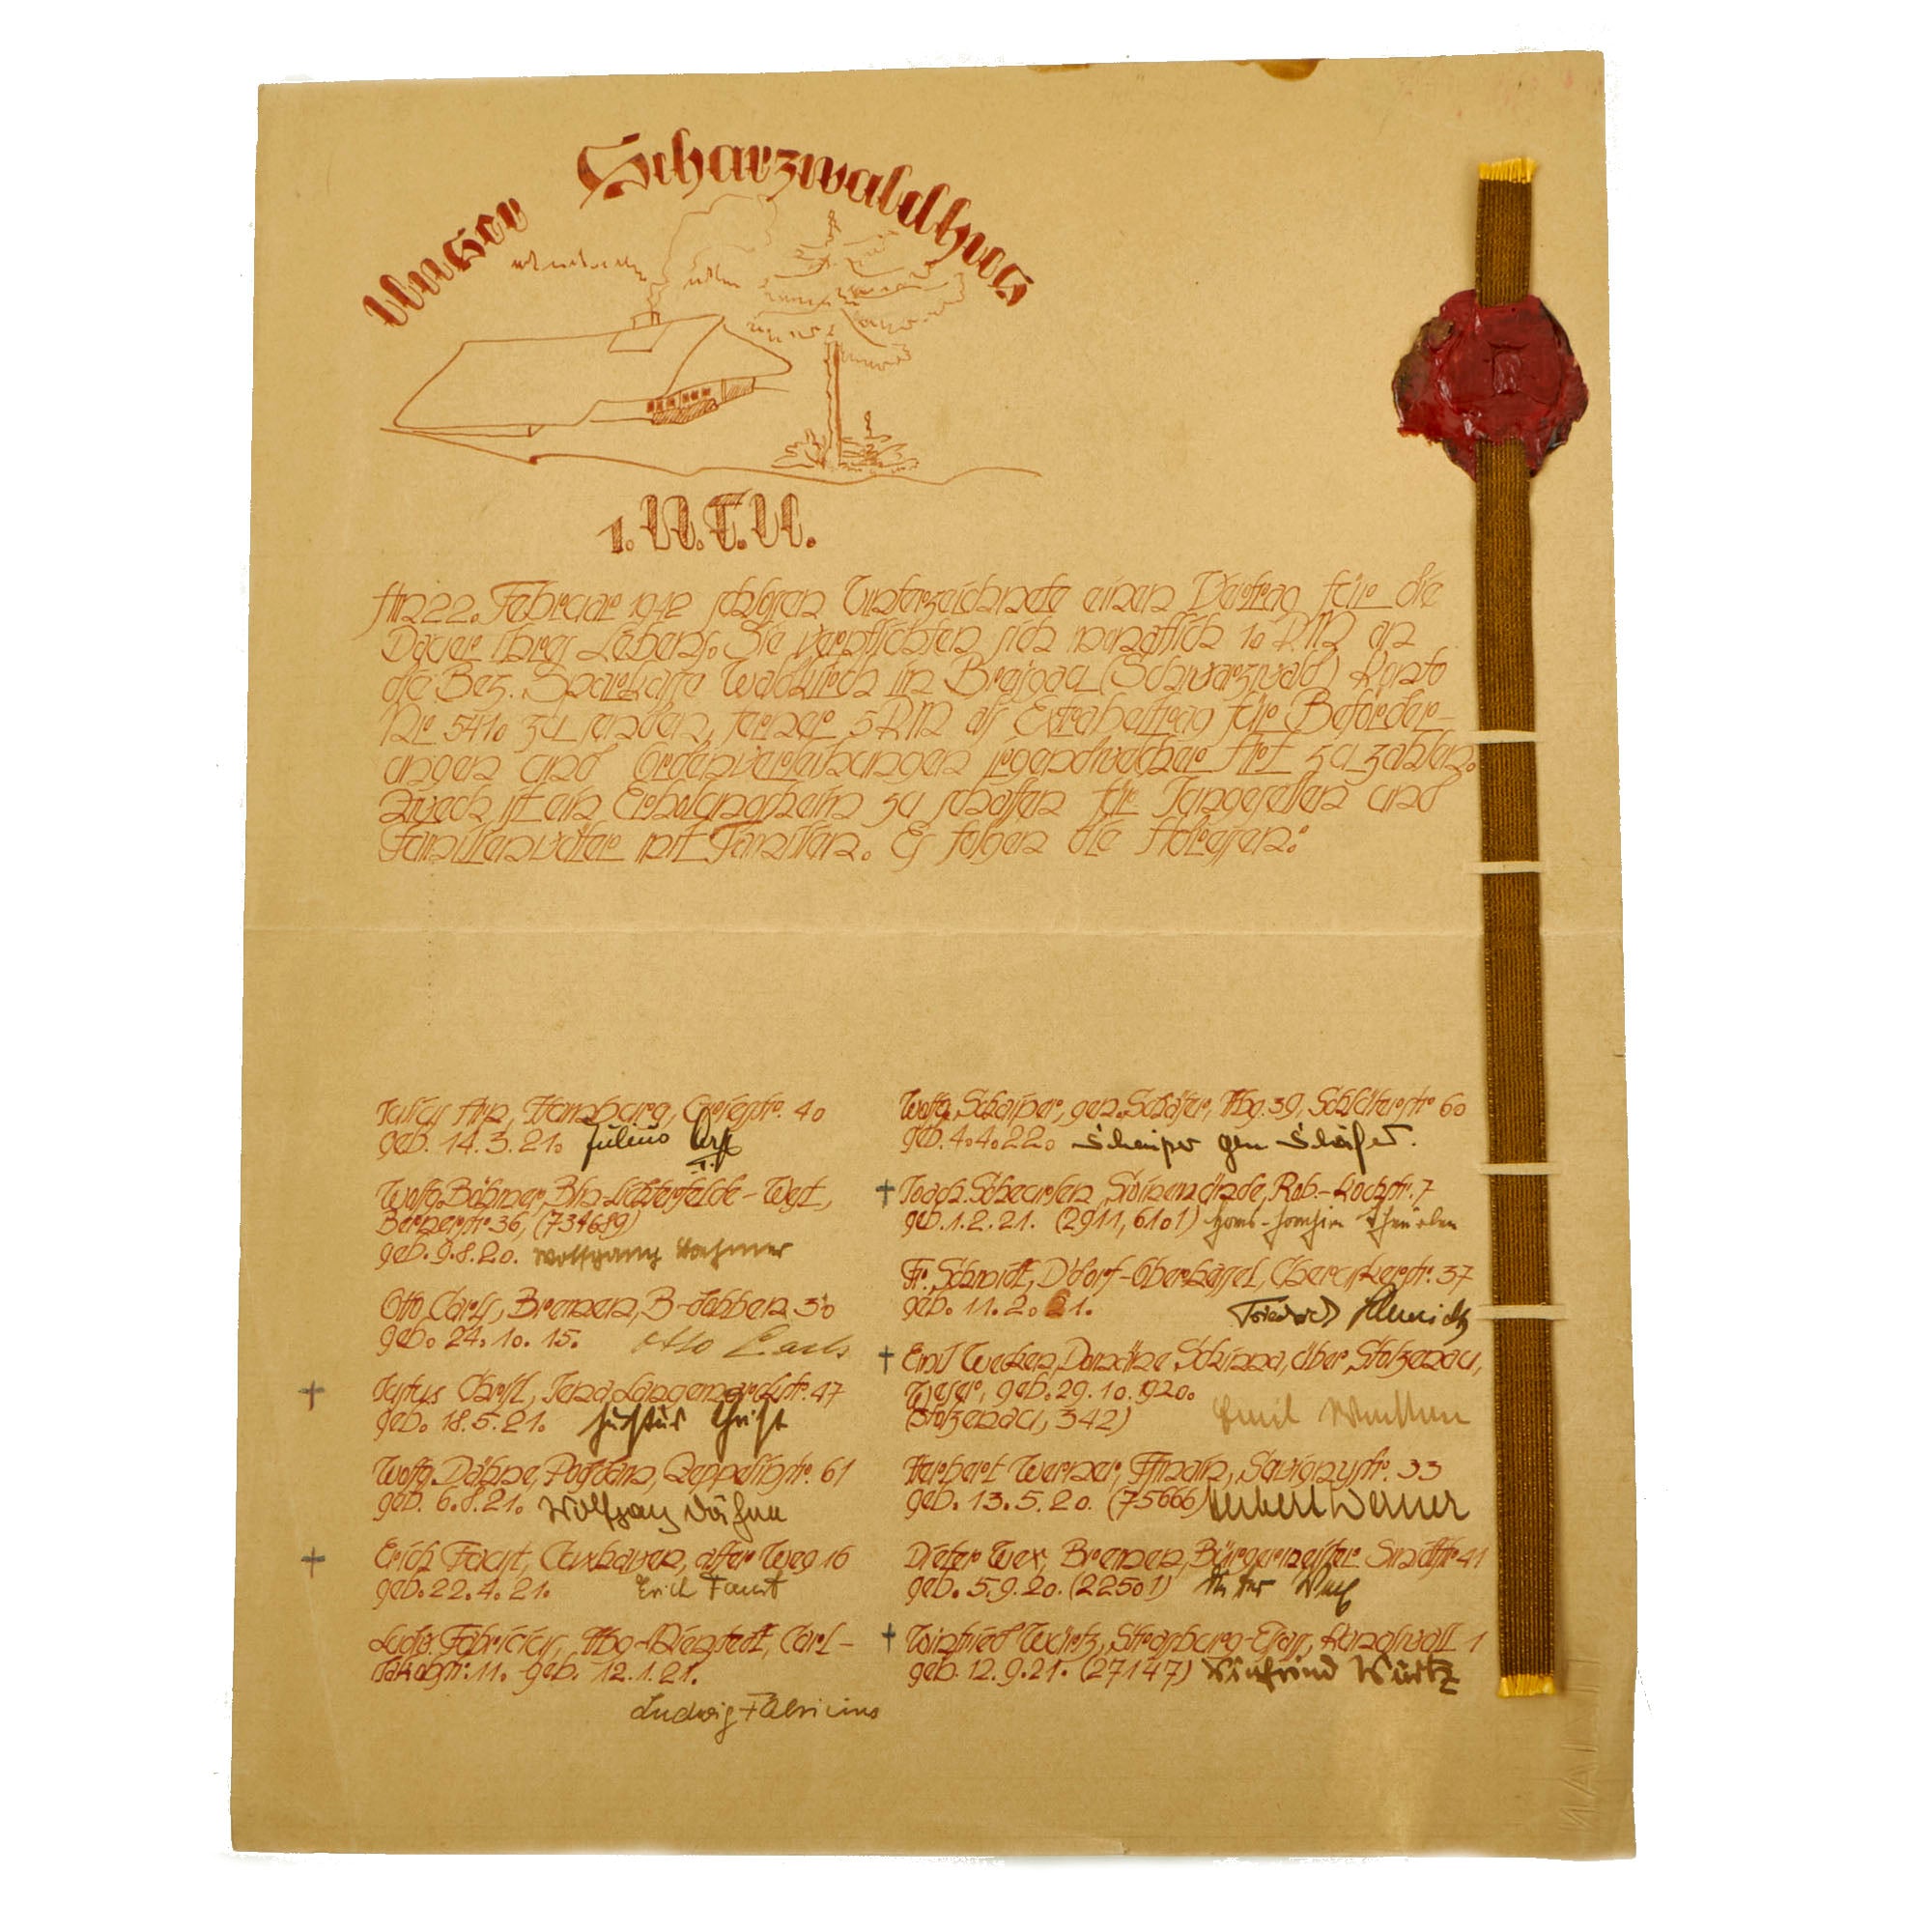 Unser Scharzwaldhus
1. N.T.U.
Am 22. Februar 1942 schlossen Unterzeichnete einen Vertrag für die
Dauer ihres Lebens. Sie verpflichten sich monatlich 10 RM an
die Bez. Sparkasse Waldkirch im Breisgau (Schwarzwald) Konto
Nr 5410 zu senden, ferner 5 RM als Extrabeitrag für Beförder-
ungen und Ordensverleihungen irgendwelcher Art zu zahlen.
Zweck ist ein Erholungsheim zu schaffen für Junggesellen und
Familienväter mit Familien. Es folgen die Adressen:
Julius Arp, Hamburg, 40
geb. 14.3.21. Julius Arp
Wolfg. Böhmer, Bln-Lichterfelde-West,
Bernerstr. 36, (734689)
geb. 9.8.20. Wolfgang Boehmer
Otto Carls, Bremen, B-Lobben 30
geb. 24.10.15. Otto Carls
Justus Christ, Jena, Langemarckstr. 47
geb. 18.5.21. Justus Christ
Wolfg. Dähne, Potsdam, Zeppelinstr. 61
geb. 6.8.21. Wolfgang Dähne
Erich Faust, Cuxhaven, alter Weg 16
geb. 22.4.21. Erich Faust
Ludw. Fabricius, Hbg-Nienstedt, Carl-
Jakobstr. 11. geb. 12.1.21.
Ludwig Fabricius
Wolfg. Schaiper, gen. Schäfer, Hbg. 39, Schlüterstr 60
geb. 4.4.22. Schaiper gen Schäfer.
Joach. Scheurlen, Swinemünde, Rob.-Kochstr. 7
geb. 1.2.21. (2911, 6101) Hans-Joachim Scheurlen
Fr. Schmidt, D'dorf-Oberkassel, 37
geb. 11.2.21. Friedrich Schmidt
Emil Wecken, Domäne Schinna, über Stolzenau,
Weser, geb. 29.10.1920.
(Stolzenau, 342) Emil
Herbert Werner, Ffmain, Savignystr. 33
geb. 13.5.20. (75666) Herbert Werner
Dieter Wex, Bremen, Bürgermeister Smidtstr 41
geb. 5.9.20. (22501) Dieter Wex
Winfried Würtz, Strassburg-Elsass, 1
geb. 12.9.21. (27147) Winfried Würtz